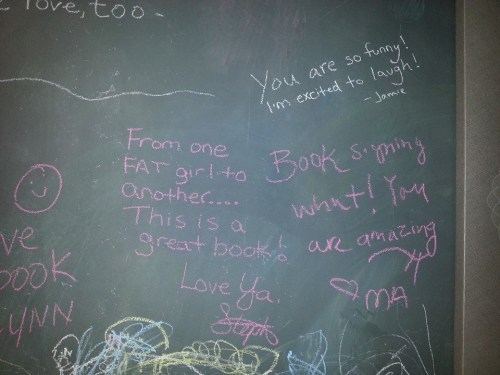 love, too -
You are so funny!
I'm excited to laugh!
- Jamie
From one
FAT girl to
another....
This is a
great book!
Love Ya,
Steph
Book signing
what! You
are amazing
MA
ve
book
LYNN